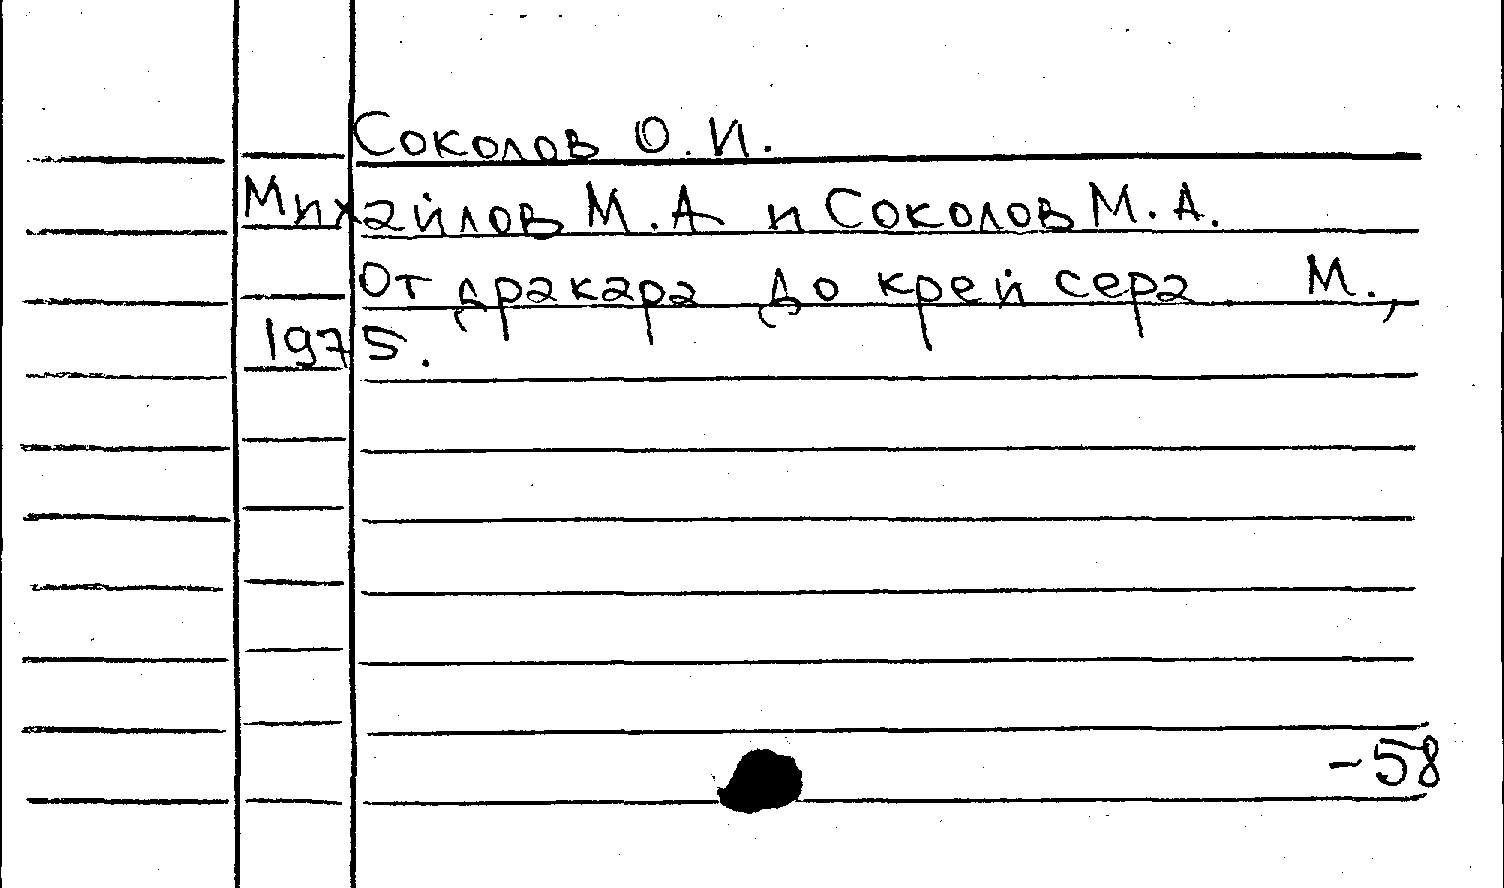 Соколов О.И.
Михайлов М.А и Соколов М.А.
От дракара до крейсера М.,
1975.
-58